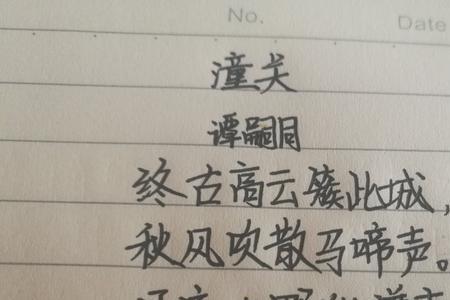 No.
Date
潼关
谭嗣同
终古高云簇此城，
秋风吹散马啼声。